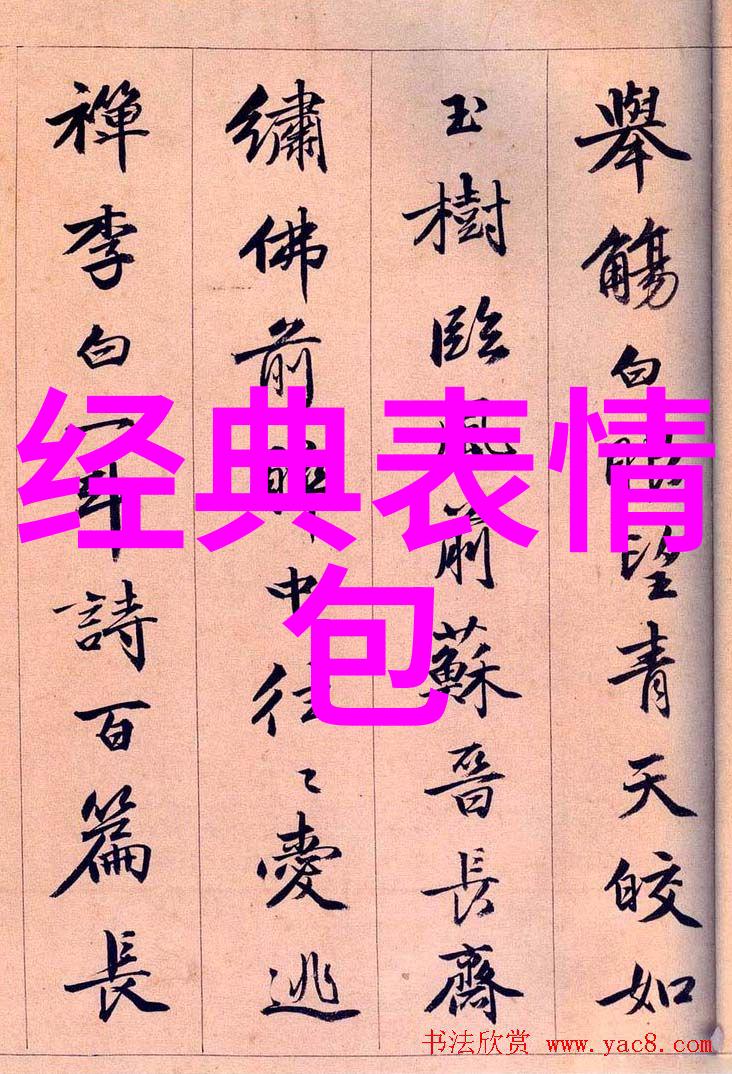 舉觴白眼望青天皎如
玉樹臨風前蘇晉長齋
繡佛前醉中往々愛逃
禪李白一斗詩百篇長
经典表情
包
书法欣赏 www.yac8.com